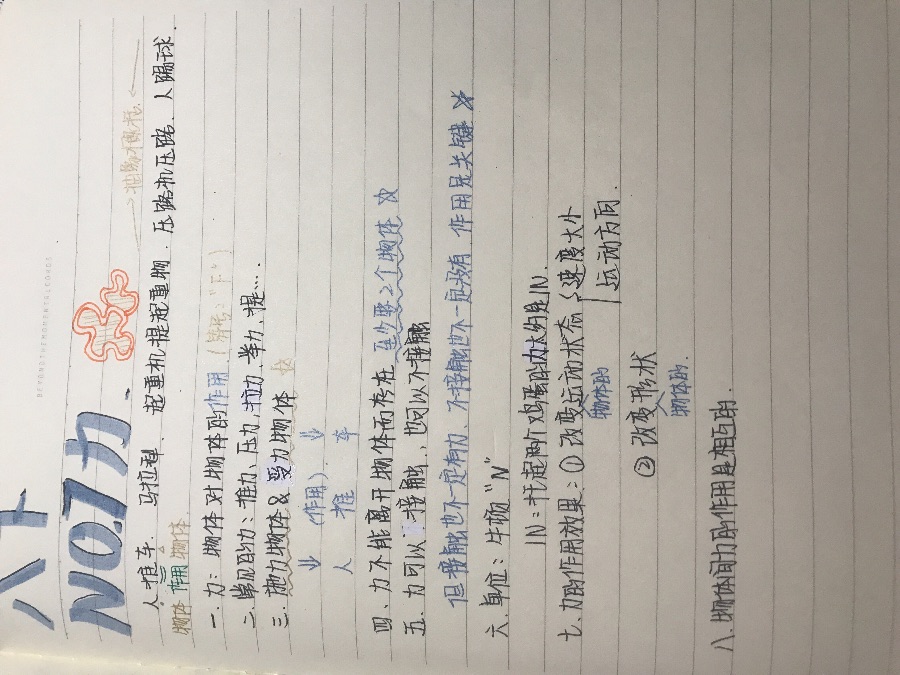 NO.7 力.
→推动小模型←
人推车. 马拉犁. 起重机提起重物. 压路机压路、人踢球.
物体 作用 物体
一. 力: 物体对物体的作用 (符号:"F")
二. 常见的力: 推力、压力、拉力、举力、提…
三. 施力物体 & 受力物体 ☆
↓ (作用) ↓
人 推 车
四. 力不能离开物体而存在 至少要2个物体 ☆
五. 力可以接触, 也可以不接触
但接触也不一定有力、不接触也不一定没有 作用是关键 ☆
六. 单位: 牛顿 "N"
1N: 托起两个鸡蛋的力大约是1N.
七. 力的作用效果: ① 改变运动状态 { 速度大小
物体的 运动方向.
② 改变形状
物体的
八. 物体间力的作用是相互的.